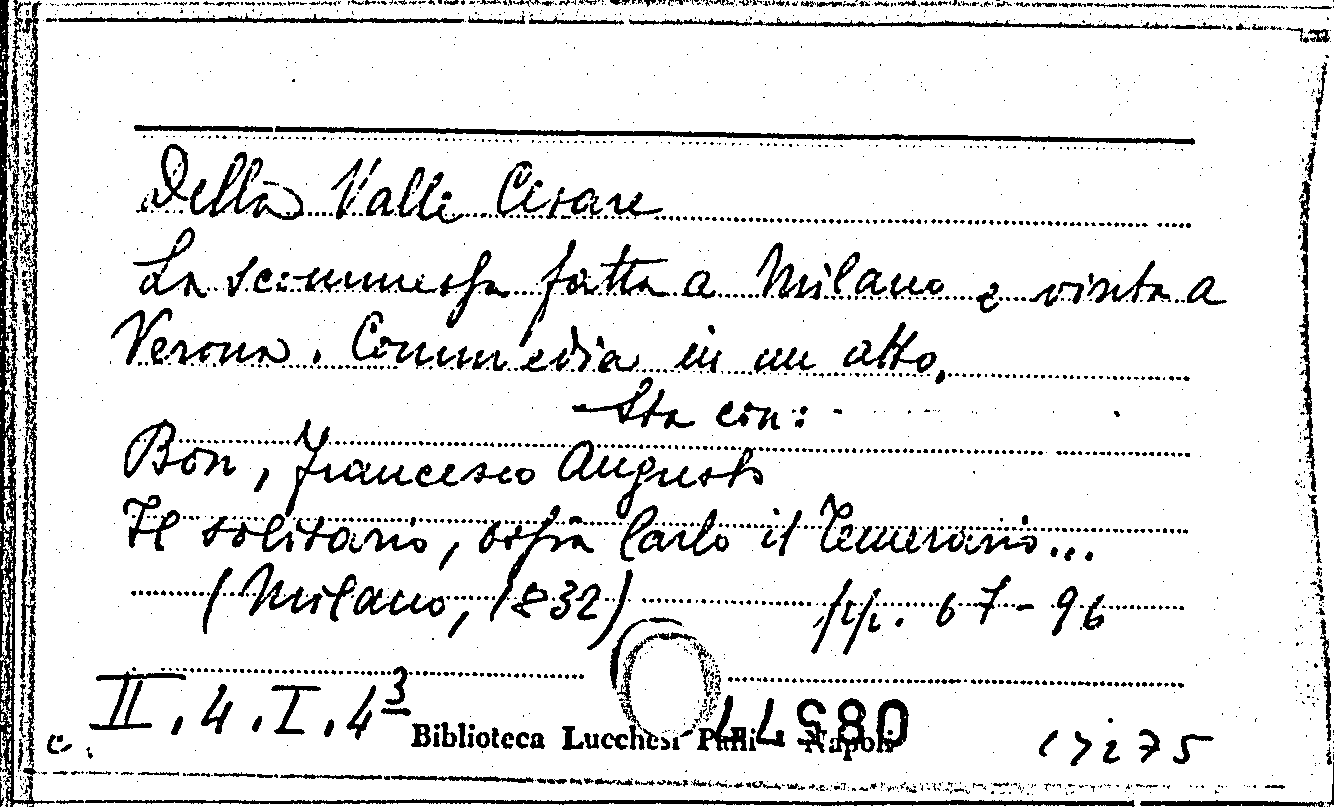 Della Valle Cesare
La scommessa fatta a Milano e vinta a
Verona. Commedia in un atto.
Sta con:
Bon, Francesco Augusto
Il solitario, ossia Carlo il Temerario...
(Milano, 1832) pp. 67-96
II.4.I.4³
Biblioteca Lucchesi Palli - Napoli
c.